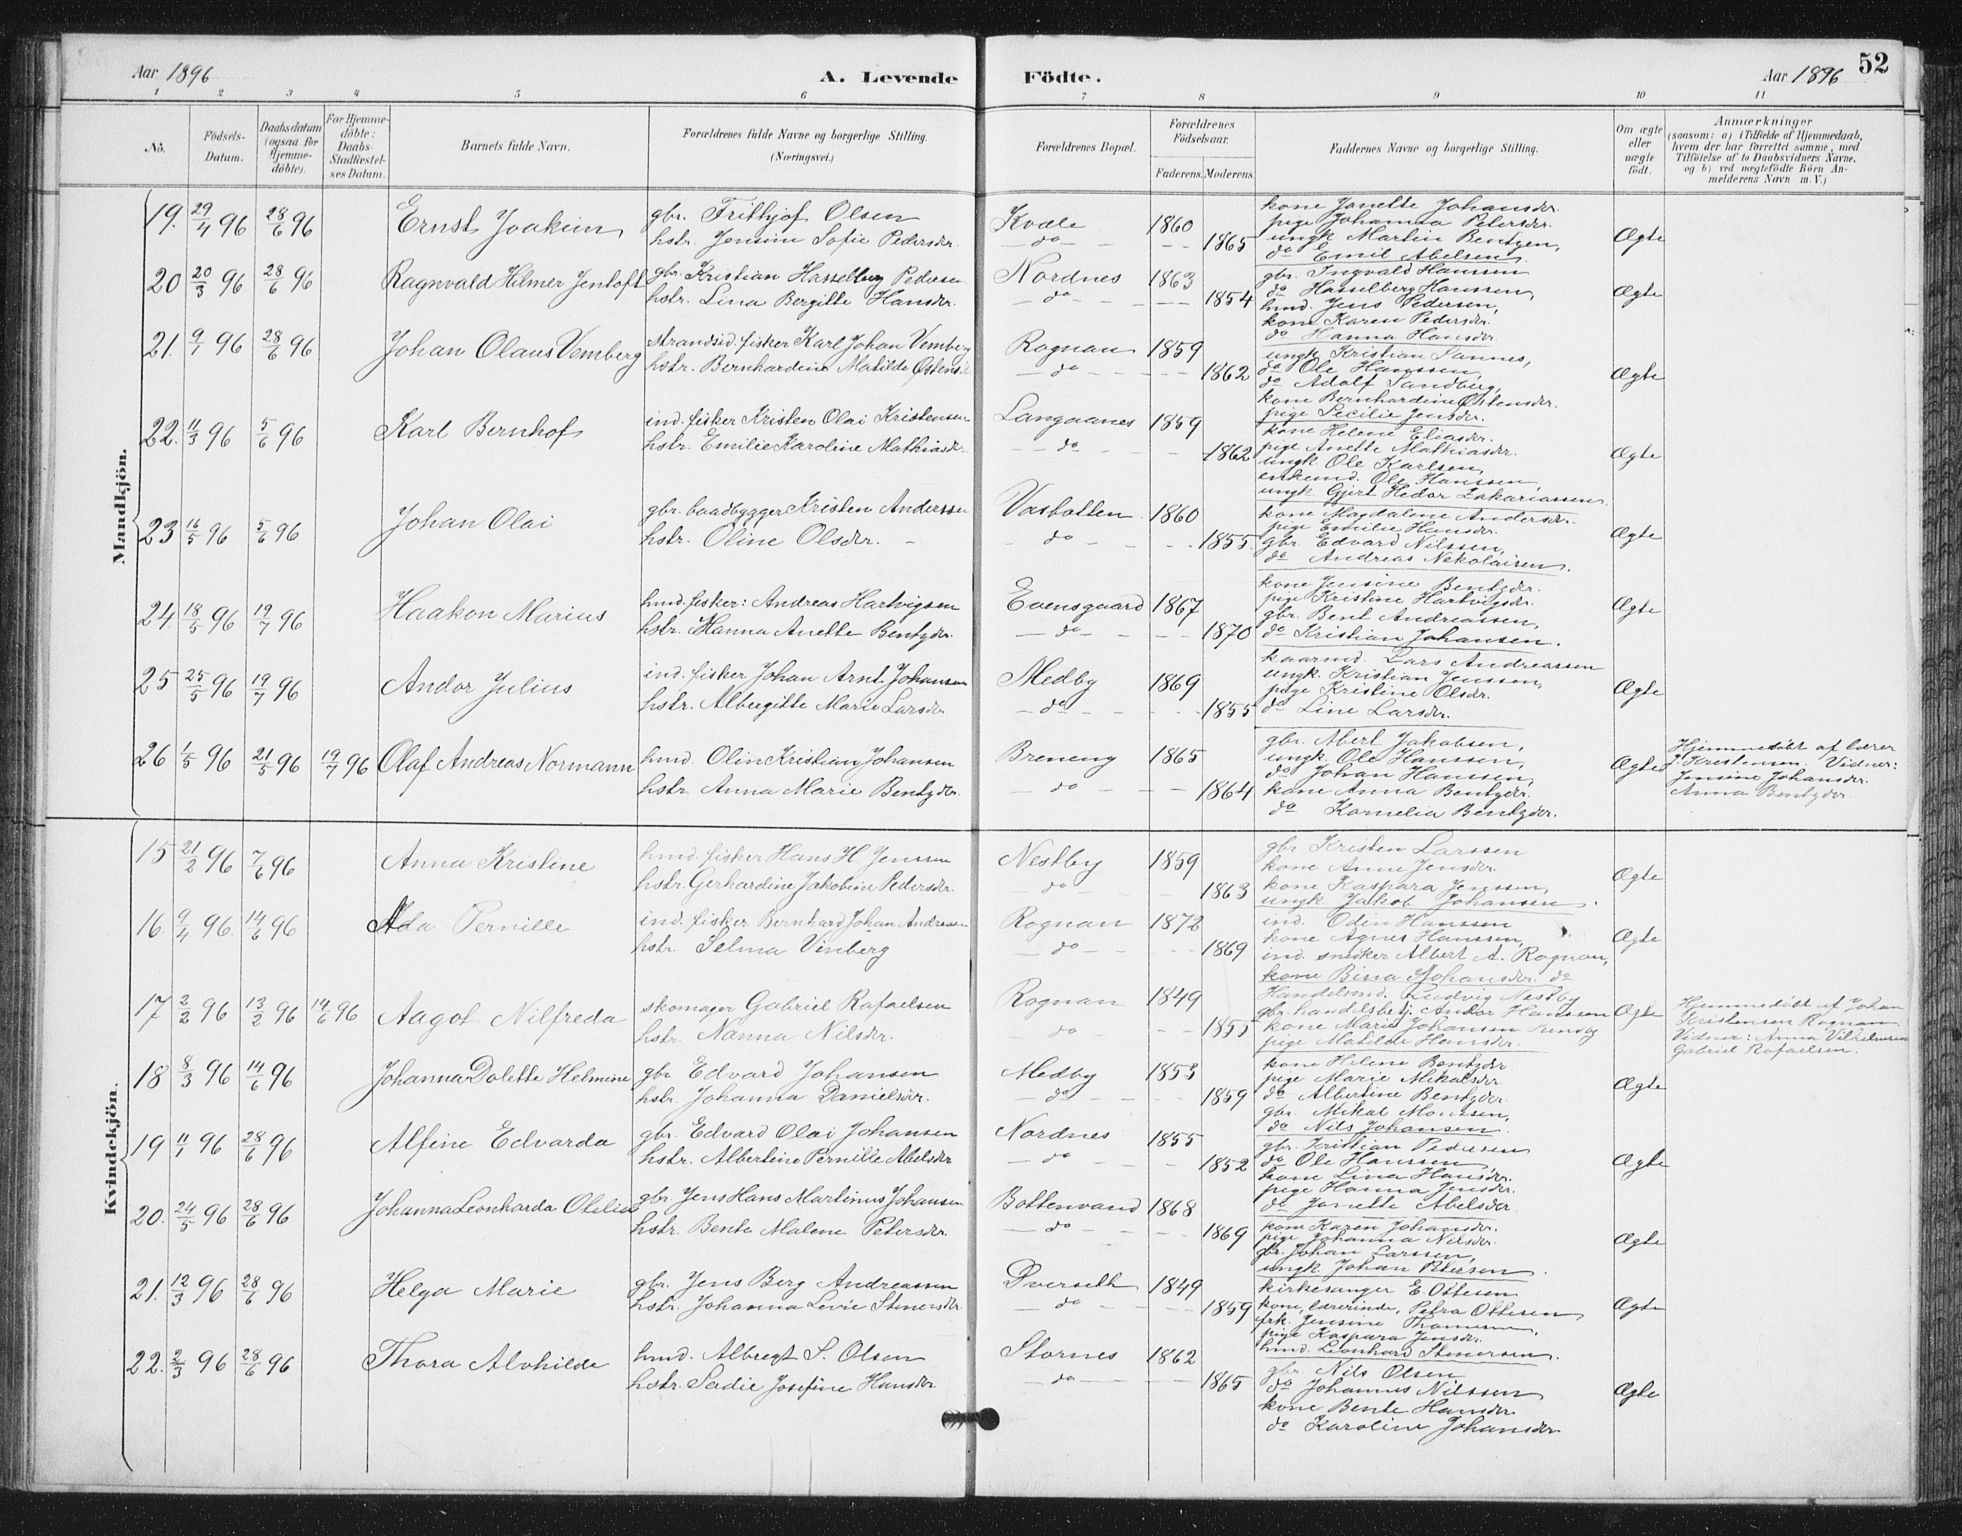 Aar 1896 A. Levende Födte. Aar 1896 52
1 2 3 4 5 6 7 8 9 10 11
No. Födsels-Datum. Daabsdatum (ogsaa for Hjemme-döbte). For Hjemme-döbte: Daabs-Stadfæstel-ses Datum. Barnets fulde Navn. Forældrenes fulde Navne og borgerlige Stilling. (Næringsvei.) Forældrenes Bopæl. Forældrenes Födselsaar. Faderens. Moderens. Faddernes Navne og borgerlige Stilling. Om ægte eller uægte födt. Anmærkninger (saasom: a) i Tilfælde af Hjemmedaab, hvem der har forrettet samme, med Tilföielse af to Daabsvidners Navne, og b) ved uægtefödte Börn An-melderens Navn m. V.)
Mandkjön.
19. 29/4 96 28/6 96 Ernst Joakim gbr. Frithjof Olsen Kvæle 1860
hstr. Jensine Sofie Pedersdr. do 1865 Ægte
kone Janette Johansdr.
pige Johanna Petersdr.
ungk Martin Bentzen,
do Emil Abelsen.
20 20/3 96 28/6 96 Ragnvald Hilmer Jentoft gbr. Kristian Hasselberg Pedersen Nordnes 1863
hstr. Lina Bergitte Hansdr. do 1854 Ægte
gbr. Ingvald Hanssen
do Hasselberg Hanssen,
hmd. Jens Pedersen,
kone Karen Pedersdr.
do Hanna Hansdr.
21. 9/1 96 28/6 96 Johan Olaus Vemberg strandsid. fisker Karl Johan Vemberg Rognan 1859
hstr. Bernhardine Matilde Ostensd do 1862 Ægte
ungk Kristian Sannes,
do Ole Hanssen,
do Adolf Sandberg,
kone Bernhardine Ostensdr.
pige Secilie Jensdr.
22. 11/3 96 5/6 96 Karl Bernhof ind. fisker Kristen Olai Kristensen Langaanes 1859
hstr. Emilie Karoline Mathiasdr do 1862 Ægte
kone Helene Eliasdr.
pige Anette Mathiasdr.
ungk. Ole Karlsen,
enkemd. Ole Hanssen,
ungk Gjert Hedor Zakariassen.
23 16/5 96 5/6 96 Johan Olai gbr. baadbygger Kristen Anderssen Vasbotten 1860
hstr. Oline Olsdr. do 1855. Ægte
kone Magdalene Andersdr.
pige Emilie Hansdr.
gbr. Edvard Nilssen,
do Andreas Nekolaisen.
24. 18/5 96 19/7 96 Haakon Marius hmd. fisker: Andreas Hartvigsen Evensgaard 1867
hstr. Hanna Anette Bentzdr. do 1870 Ægte
kone Jensine Bentzdr.
pige Kristine Hartvigsdr.
gbr. Bent Andreassen,
do Kristian Johansen.
25 25/5 96 19/7 96 Andor Julius ind. fisker Johan Arnt Johansen Medby 1869
hstr. Albregitte Marie Larsdr. do 1855 Ægte
kaarmd. Lars Andreassen
ungk. Kristian Jenssen,
pige Kristine Olsdr.
do Line Larsdr.
26 1/5 96 21/5 96 19/7 96 Olaf Andreas Normann hmd. Olin Kristian Johansen Breneng 1865
hstr. Anna Marie Bentzdr. do 1864 Ægte
gbr. Abert Jakobsen,
ungk. Ole Hanssen,
do Johan Hanssen,
kone Anna Bentzdr.
do Kornelia Bentzdr.
Hjemmedöbt af lærer
J. Kristensen. Vidner:
Jensine Johansdr.
Anna Bentzdr.
Kvindekjön.
15 21/2 96 7/6 96 Anna Kristine hmd. fisker Hans H. Jenssen Nestby 1859
hstr. Gerhardine Jakobine Pedersdr. do 1863 Ægte
gbr Kristen Larssen
kone Anne Jensdr.
kone Kaspara Jenssen,
ungk Jakob Johansen.
16. 9/4 96. 14/6 96 Ada Pernille ind. fisker Bernhard Johan Andreassen Rognan 1872
hstr Selma Vinberg do 1869 Ægte
ind. Odin Hanssen
kone Agnes Hanssen,
ind. snedker Albert A. Rognan,
kone Bina Johansdr do
17 2/2 96 13/2 96 14/6 96 Aagot Nilfreda skomager Gabriel Rafaelsen Rognan 1849
hstr. Nanna Nilsdr. do 1855 Ægte
Handelsmd. Ludvig Nestby
gbr. handelsbetj. Andor Hanssen
kone Marie Johansen Sundby
pige Matilde Hansdr.
Hjemmedöbt af Johan
Kristensen Rognan
Vidner: Anna Vilhelmsen
Gabriel Rafaelsen.
18 8/3 96 14/6 96 Johanna Dolette Helmine gbr Edvard Johansen Medby 1853
hstr. Johanna Danielsdr. do 1859 Ægte
kone Helene Bentzdr
pige Marie Mikalsdr
do Albertine Bentzdr.
gbr. Mikal
do Nils Johansen.
19 11/1 96 28/6 96 Alfine Edvarda gbr. Edvard Olai Johansen Nordnes 1855
hstr. Albertine Pernille Abelsdr do 1852 Ægte
gbr. Kristian Pedersen
do Ole Hanssen,
kone Lina Hansdr.
pige Hanna Jensdr.
do Janette Abelsdr.
20. 24/5 96 28/6 96 Johanna Leonharda Otelie gbr. Jens Hans Martinus Johansen Bottenvand 1868
hstr. Bente Malene Petersdr. do 1869 Ægte
kone Karen Johansdr.
pige Johanna Nilsdr.
gbr. Johan Larssen,
ungk. Johan Petersen.
21. 12/3 96 28/6 96 Helga Marie gbr. Jens Berg Andreassen Dverseth 1849
hstr. Johanna Levie Stenersdr. do 1859 Ægte
kirkesanger E. Ottesen
kone, lærerinde, Petra Ottesen
frk. Jensine
pige Kaspara Jensdr.
hmd. Leonhard Stenersen.
22. 2/3 96 28/6 96 Thora Alvhilde hmd. Albregt S. Olsen Stornes 1862
hstr. Sadie Josefine Hansdr. do 1865 Ægte
gbr. Nils Olsen
do Johannes Nilssen
kone Bente Hansdr.
do Karoline Johansdr.